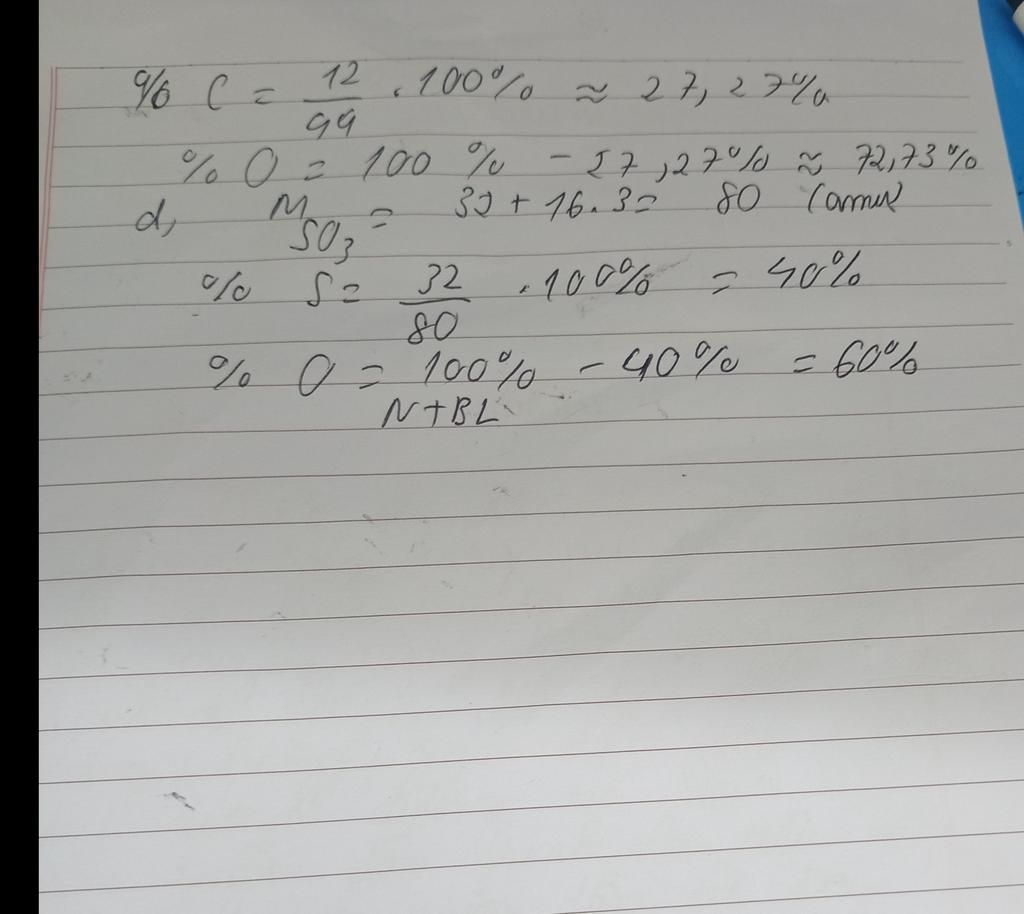 % C = 12/44 . 100% ≈ 27,27%
% O = 100 % - 27,27% ≈ 72,73%
d, M SO₃ = 32 + 16.3 = 80 (amu)
% S = 32/80 . 100% = 40%
% O = 100% - 40% = 60%
N+BL